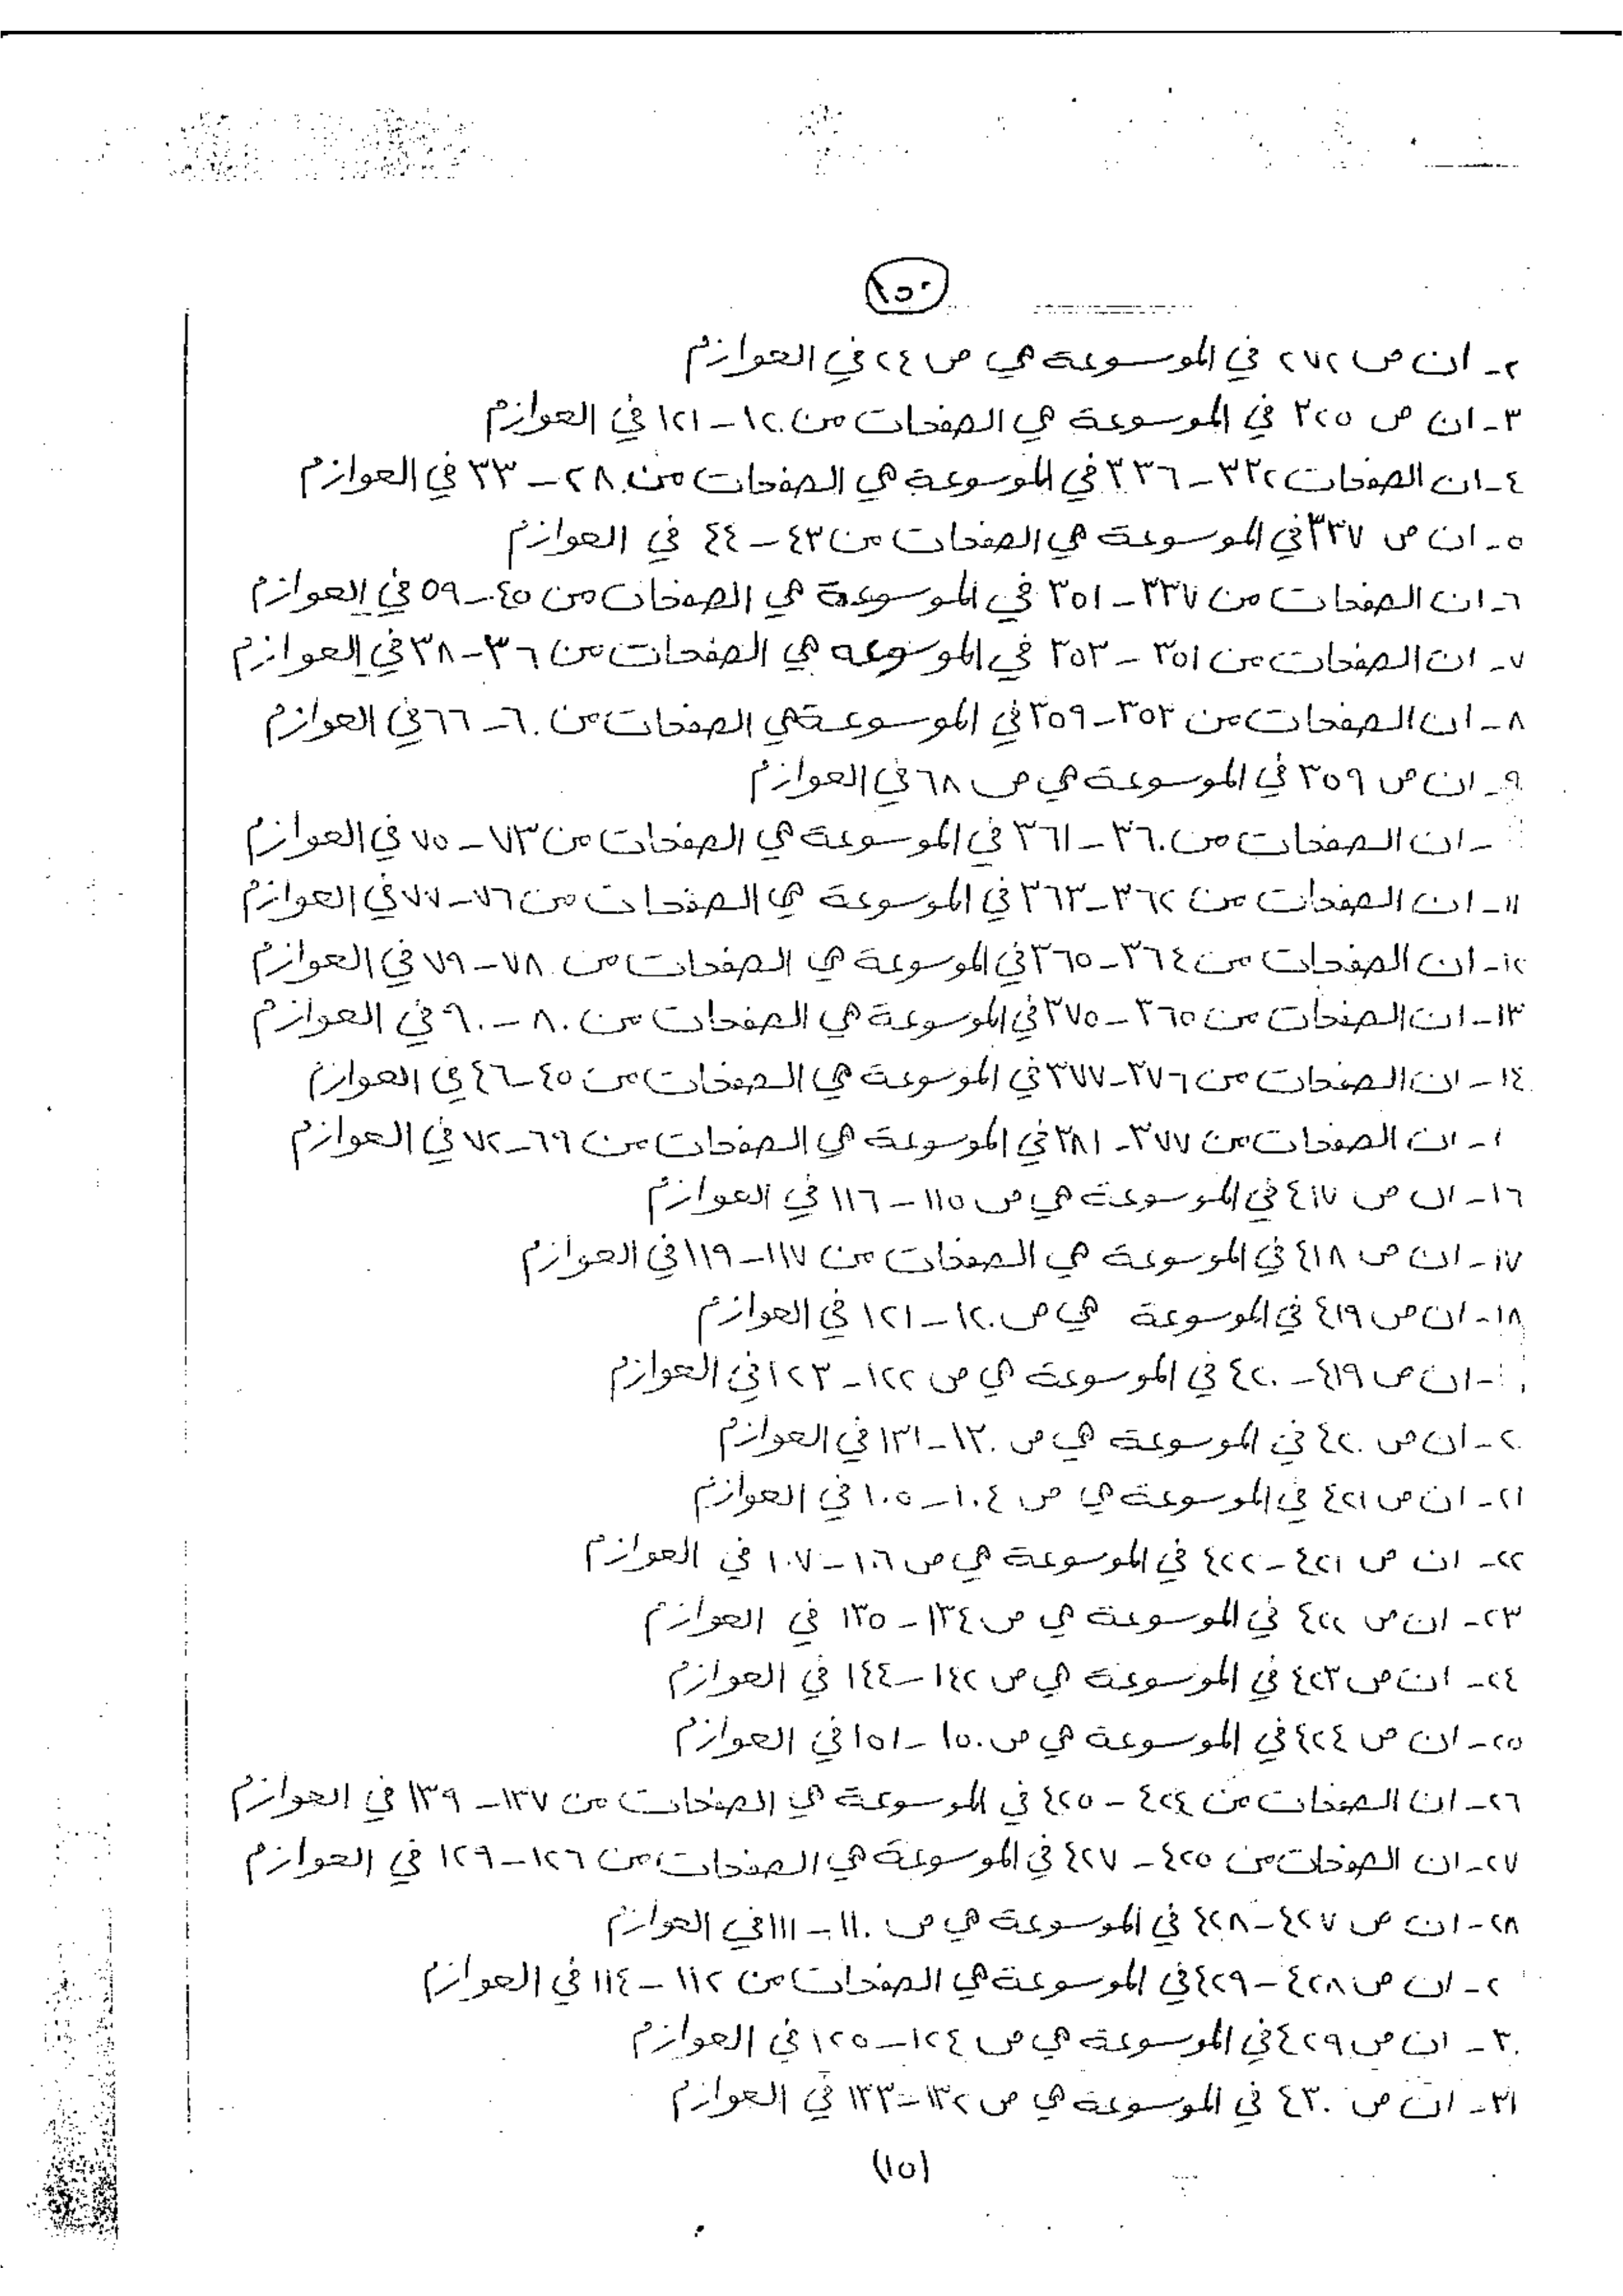 ١٥٠
٢- ان ص ٢٧٢ في الموسوعة هي ص ٢٤ في العوازم
٣- ان ص ٣٢٥ في الموسوعة هي الصفحات من ١٢٠ - ١٢١ في العوازم
٤- ان الصفحات ٣٣٢ - ٣٣٦ في الموسوعة هي الصفحات من ٢٨ - ٣٣ في العوازم
٥- ان ص ٣٣٧ في الموسوعة هي الصفحات من ٤٣ - ٤٤ في العوازم
٦- ان الصفحات من ٣٣٧ - ٣٥١ في الموسوعة هي الصفحات من ٤٥ - ٥٩ في العوازم
٧- ان الصفحات من ٣٥١ - ٣٥٣ في الموسوعه هي الصفحات من ٣٦ - ٣٨ في العوازم
٨- ان الصفحات من ٣٥٣ - ٣٥٩ في الموسوعة هي الصفحات من ٦٠ - ٦٦ في العوازم
٩- ان ص ٣٥٩ في الموسوعة هي ص ٦٨ في العوازم
- ان الصفحات من ٣٦٠ - ٣٦١ في الموسوعة هي الصفحات من ٧٣ - ٧٥ في العوازم
١١- ان الصفحات من ٣٦٢ - ٣٦٣ في الموسوعة هي الصفحات من ٧٦ - ٧٧ في العوازم
١٢- ان الصفحات من ٣٦٤ - ٣٦٥ في الموسوعة هي الصفحات من ٧٨ - ٧٩ في العوازم
١٣- ان الصفحات من ٣٦٥ - ٣٧٥ في الموسوعة هي الصفحات من ٨٠ - ٩٠ في العوازم
١٤- ان الصفحات من ٣٧٦ - ٣٧٧ في الموسوعة هي الصفحات من ٤٥ - ٤٦ في العوازم
١- ان الصفحات من ٣٧٧ - ٣٨١ في الموسوعة هي الصفحات من ٦٩ - ٧٢ في العوازم
١٦- ان ص ٤١٧ في الموسوعة هي ص ١١٥ - ١١٦ في العوازم
١٧- ان ص ٤١٨ في الموسوعة هي الصفحات من ١١٧ - ١١٩ في العوازم
١٨- ان ص ٤١٩ في الموسوعة هي ص ١٢٠ - ١٢١ في العوازم
- ان ص ٤١٩ - ٤٢٠ في الموسوعة هي ص ١٢٢ - ١٢٣ في العوازم
٢٠- ان ص ٤٢٠ في الموسوعة هي ص ١٣٠ - ١٣١ في العوازم
٢١- ان ص ٤٢١ في الموسوعة هي ص ١٠٤ - ١٠٥ في العوازم
٢٢- ان ص ٤٢١ - ٤٢٢ في الموسوعة هي ص ١٠٦ - ١٠٧ في العوازم
٢٣- ان ص ٤٢٢ في الموسوعة هي ص ١٣٤ - ١٣٥ في العوازم
٢٤- ان ص ٤٢٣ في الموسوعة هي ص ١٤٢ - ١٤٤ في العوازم
٢٥- ان ص ٤٢٤ في الموسوعة هي ص ١٥٠ - ١٥١ في العوازم
٢٦- ان الصفحات من ٤٢٤ - ٤٢٥ في الموسوعة هي الصفحات من ١٣٧ - ١٣٩ في العوازم
٢٧- ان الصفحات من ٤٢٥ - ٤٢٧ في الموسوعة هي الصفحات من ١٢٦ - ١٢٩ في العوازم
٢٨- ان ص ٤٢٧ - ٤٢٨ في الموسوعة هي ص ١١٠ - ١١١ في العوازم
٢- ان ص ٤٢٨ - ٤٢٩ في الموسوعة هي الصفحات من ١١٢ - ١١٤ في العوازم
٣٠- ان ص ٤٢٩ في الموسوعة هي ص ١٢٤ - ١٢٥ في العوازم
٣١- ان ص ٤٣٠ في الموسوعة هي ص ١٣٢ - ١٣٣ في العوازم
(١٥)